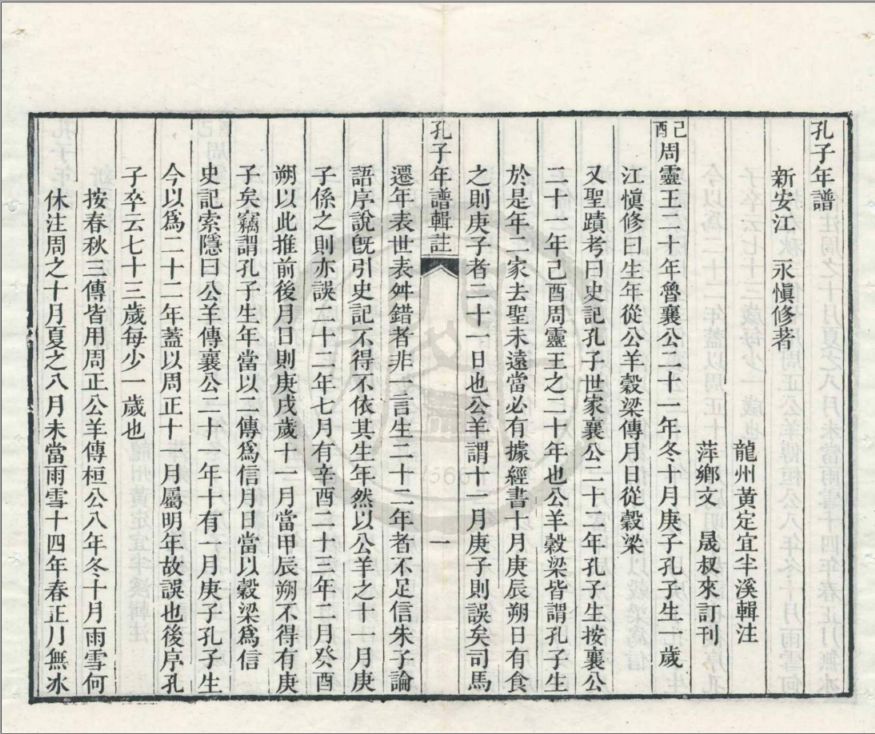 孔子年譜
新安江　永愼修著
龍州黃定宜半溪輯注
萍鄉文　晟叔來訂刊
己酉周靈王二十年魯襄公二十一年冬十月庚子孔子生一歲
江愼修曰生年從公羊穀梁傳月日從穀梁
又聖蹟考曰史記孔子世家襄公二十二年孔子生按襄公
二十一年己酉周靈王之二十年也公羊穀梁皆謂孔子生
於是年二家去聖未遠當必有據經書十月庚辰朔日有食
之則庚子者二十一日也公羊謂十一月庚子則誤矣司馬
孔子年譜輯註
一
遷年表世表舛錯者非一言生二十二年者不足信朱子論
語序說旣引史記不得不依其生年然以公羊之十一月庚
子係之則亦誤二十二年七月有辛酉二十三年二月癸酉
朔以此推前後月日則庚戌歲十一月當甲辰朔不得有庚
子矣竊謂孔子生年當以二傳爲信月日當以穀梁爲信
史記索隱曰公羊傳襄公二十一年十有一月庚子孔子生
今以爲二十二年蓋以周正十一月屬明年故誤也後序孔
子卒云七十三歲每少一歲也
按春秋三傳皆用周正公羊傳桓公八年冬十月雨雪何
休注周之十月夏之八月未當雨雪十四年春正月無冰